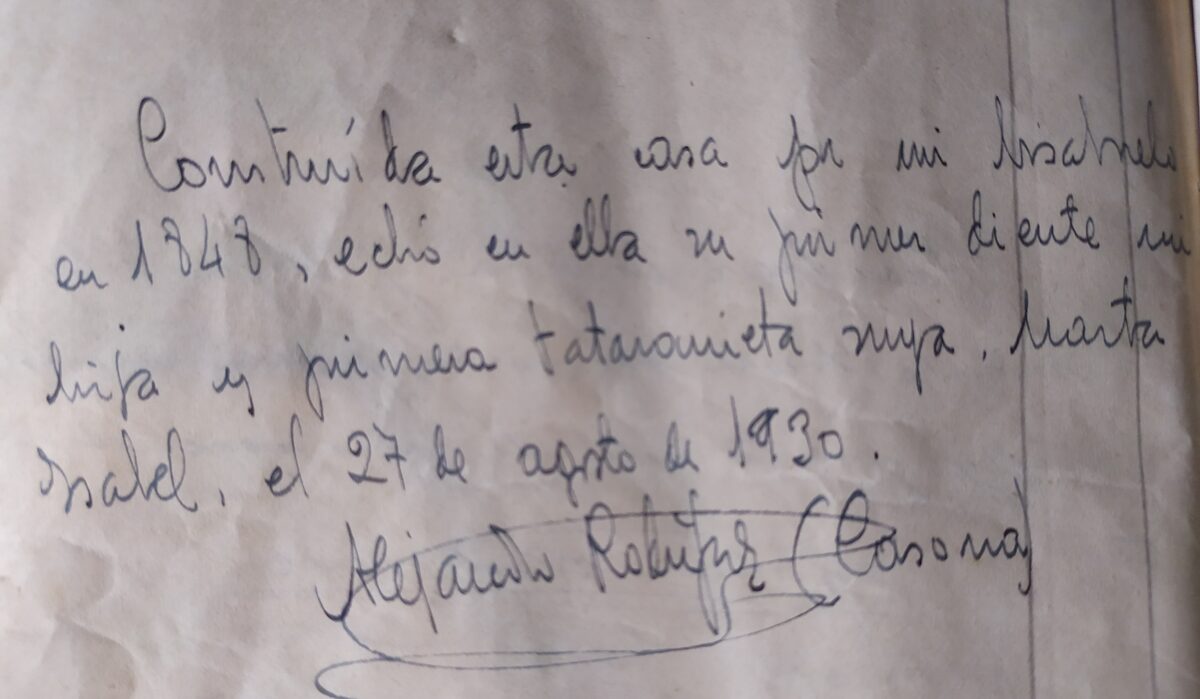 Construída esta casa por mi bisabuelo
en 1848, echó en ella su primer diente mi
hija y primera tataranieta suya, Marta
Isabel, el 27 de agosto de 1930.
Alejandro Rodríguez (Casona)